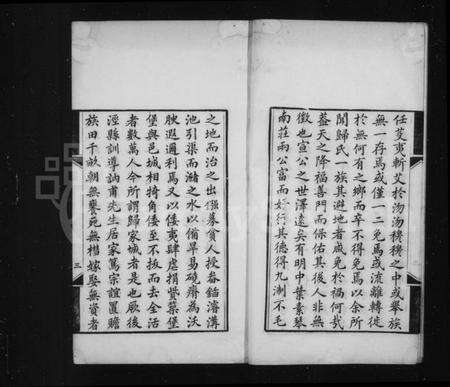 任芟夷斬艾於沕沕穆穆之中或舉族
無一存焉或僅一二免焉或流離轉徙
於無何有之鄉而卒不得免焉以余所
聞歸氏一族其避地者咸免於禍何哉
蓋天之降福善門而保佑其後人非無
徵也宣公之世澤遠矣有明中葉素琴
南莊兩公富而好行其德得九制不毛
之地而治之出鏹募貧人授畚鍤濬溝
池引渠而潴之水以備旱易磽瘠為沃
腴遐邇利焉又以倭夷肆虐捐貲築堡
堡與邑城相犄角倭至不拔而去全活
者數萬人今所謂歸家城者是也厥後
涇縣訓導訥甫先生居家篤宗誼置贍
族田千畝朝無饔死無槥嫁娶無資者
三